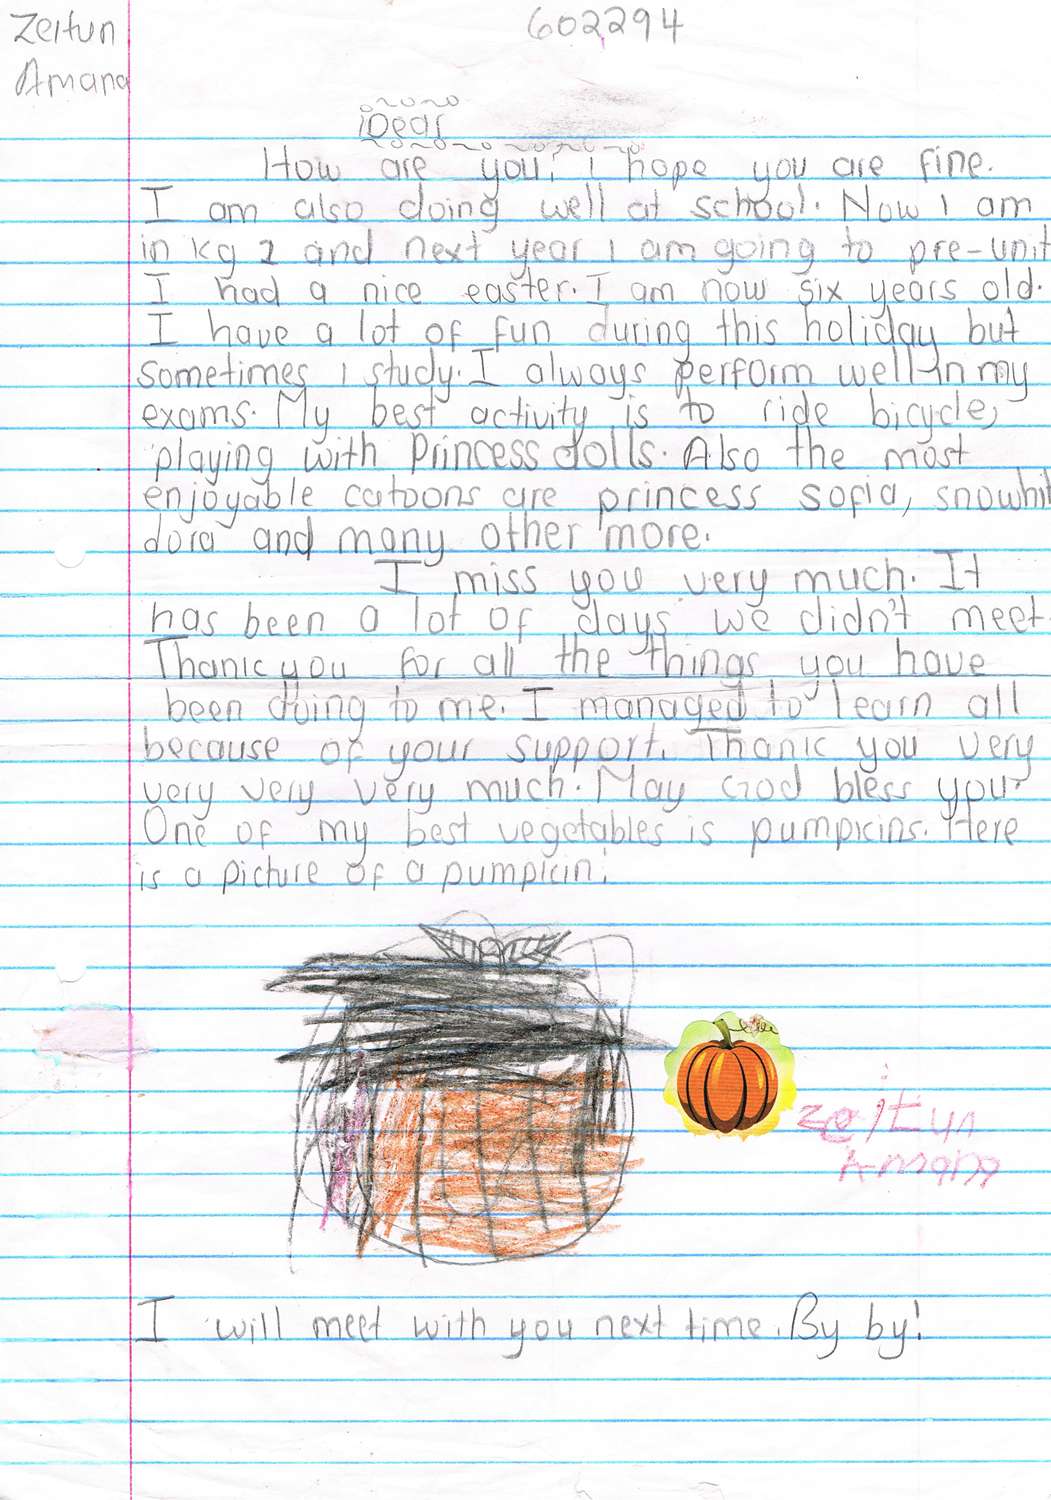 Zeitun
Amana
602294
Dear
How are you, I hope you are fine.
I am also doing well at school. Now I am
in kg 2 and next year I am going to pre-unit
I had a nice easter. I am now six years old.
I have a lot of fun during this holiday but
sometimes I study. I always perform well in my
exams. My best activity is to ride bicycle,
playing with Princess dolls. Also the most
enjoyable catoons are princess sofia, snowhit
dora and many other more.
I miss you very much. It
has been a lot of days we didn't meet.
Thank you for all the things you have
been doing to me. I managed to learn all
because of your support. Thank you very
very very very much. May God bless you.
One of my best vegetables is pumpkins. Here
is a picture of a pumpkin.
zeitun
Amana
I will meet with you next time. By by!